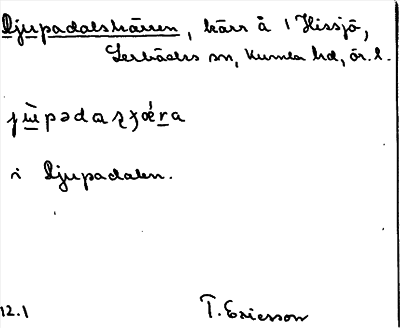 Djupadalskärren, kärr å 1 Hissjö,
Lerbäcks sn, Kumla hd, ör. l.
i Djupadalen.
12.1 T. Ericsson